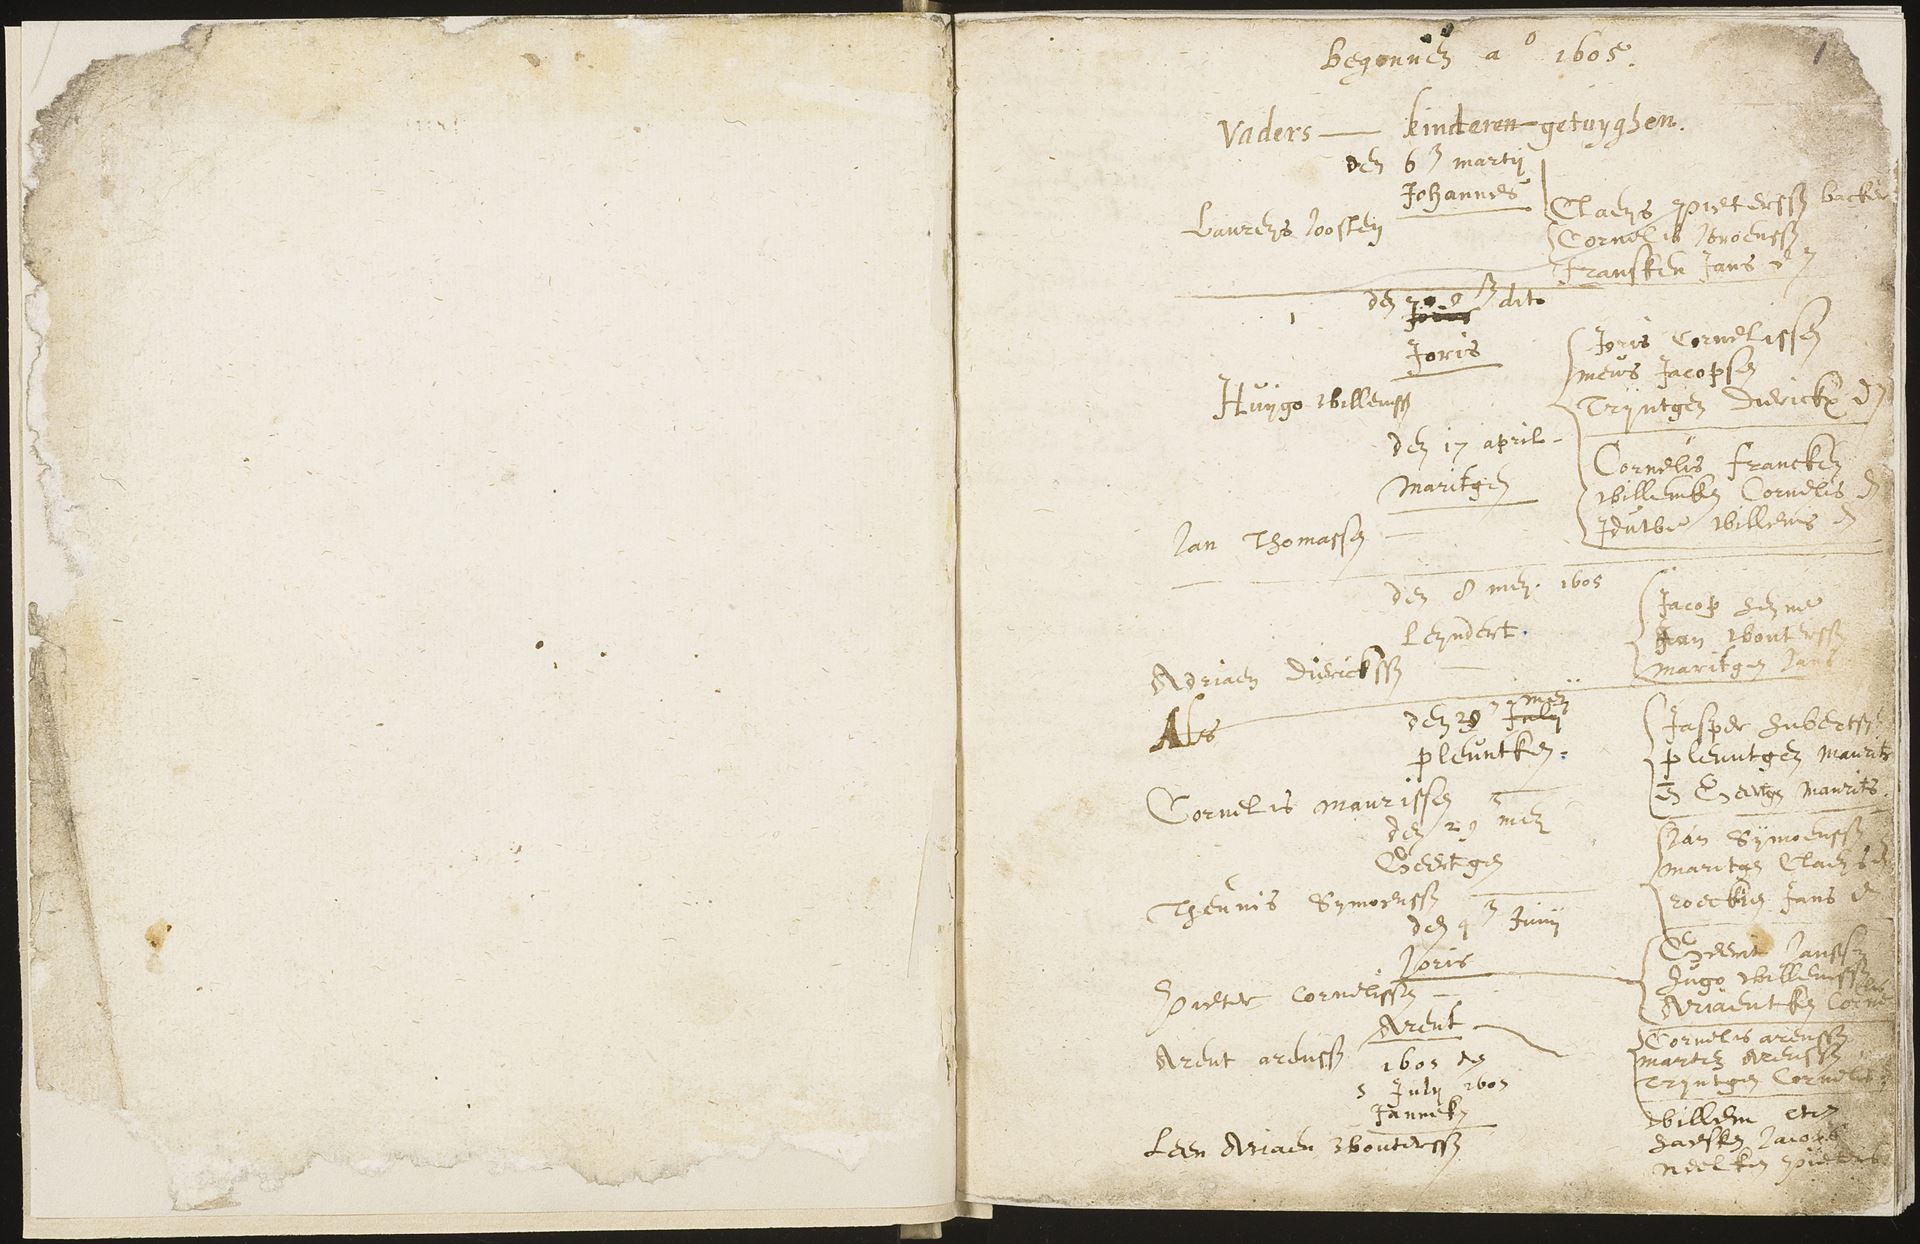 1
Begonnen a° 1605.
Vaders — kinderen — getuyghen.
den 6 martij
Johannes
Laurens Joosten
Claeys Pieterss backer
Cornelis Jeroenss
Fransken Jans d
den dito
1
Joris
Joris
Huijgo Willemss
Joris Cornelissen
mews Jacopsen
Trijntgen Dierickx d
den 17 april
Maritgen
Jan Thomassen
Cornelis francken
Willemken Cornelis d
Willems d
den 8 mey. 1605
Leyndert.
Adriaen Diericksss
Jacop
Jan Wouterss
maritgen Jans
Als
den 29 July mey
pleuntken.
Cornelis maurissen
Jasper huberts
pleuntgen Maurits
en Geertgen Maurits.
den 29 mey
Geertgen
Theunis Symoenss
Jan Sijmoenss
maritgen Claeys d
Jans d
den Junij
Joris
Pieter Cornelissen
Gerrit Janssen
hugo Willemssen
Ariaentken Cornelis
Arent
Arent arenss
Cornelis arenss
marten Arenss
Trijntgen Cornelis
1605 den
5 July 1605
Janneken
Leen Ariaen Wouterss
Willem
Jacobs
neelken Pieters